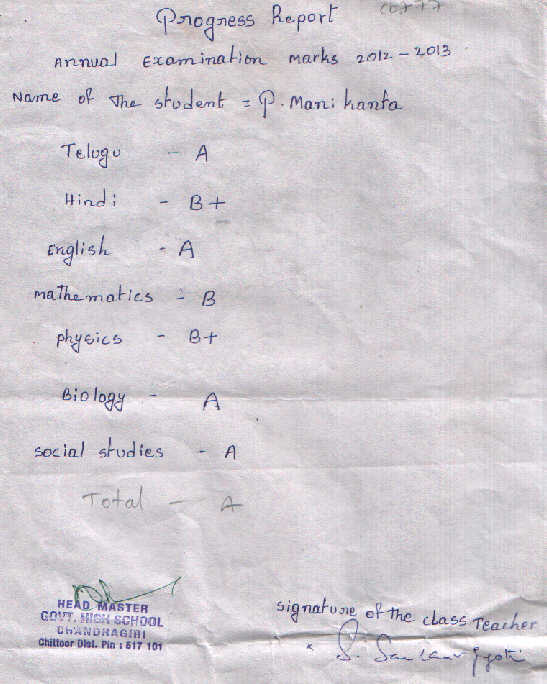 Progress Report
Annual Examination marks 2012 - 2013
Name of The student = P. Manikanta
Telugu - A
Hindi - B+
English - A
mathematics - B
physics - B+
Biology - A
social studies - A
Total - A
HEAD MASTER
GOVT. HIGH SCHOOL
CHANDRAGIRI
Chittoor Dist. Pin : 517 101
signature of the class Teacher